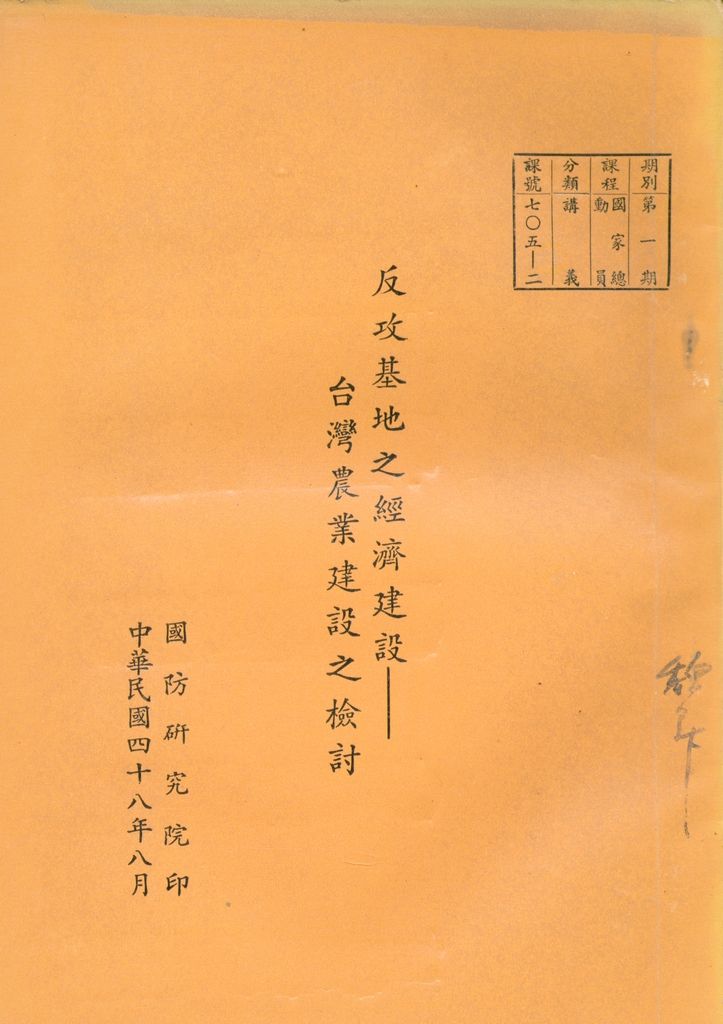 期別 第一期
課程 國家總動員
分類 講義
課號 七〇五—二
反攻基地之經濟建設——
台灣農業建設之檢討
國防研究院印
中華民國四十八年八月